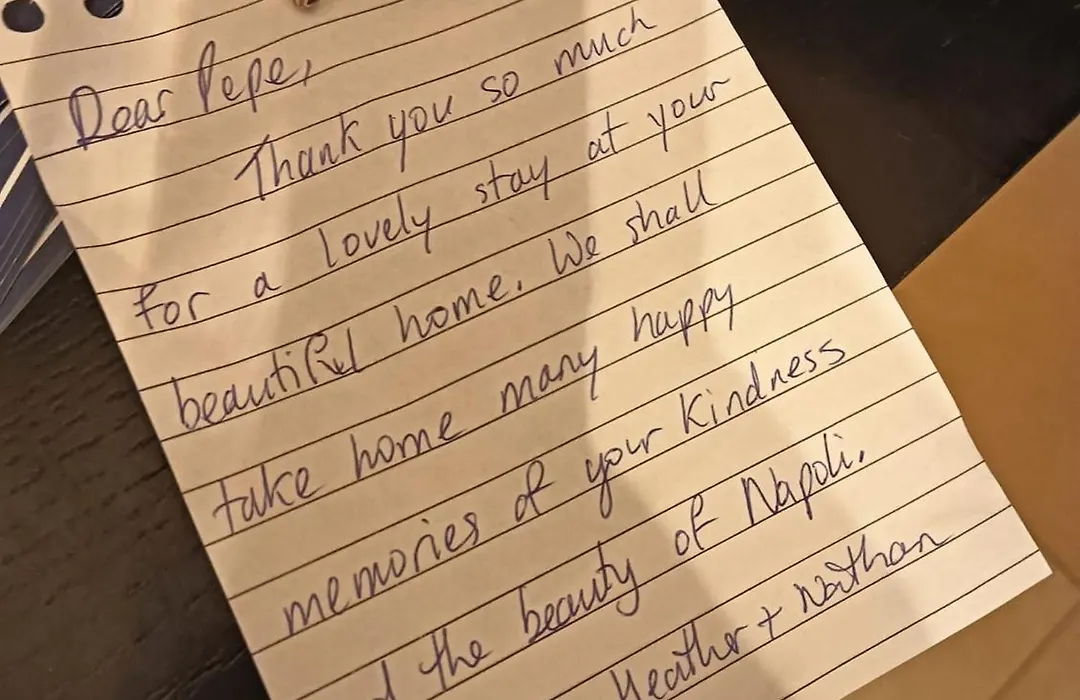 Dear Pepe,
Thank you so much
for a lovely stay at your
beautiful home. We shall
take home many happy
memories of your kindness
the beauty of Napoli.
Heather + Nathan